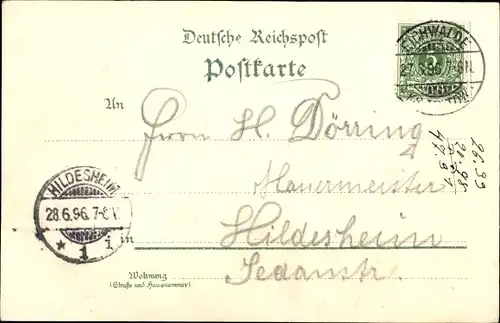 Deutsche Reichspost
Postkarte
EICHWALDE
27.6.96. 7-8 N.
An
Herrn H. Dörring
Mauermeister
HILDESHEIM
28.6.96. 7-8 V.
* 1 i
in Hildesheim
Sedanstr.
Wohnung
(Straße und Hausnummer)